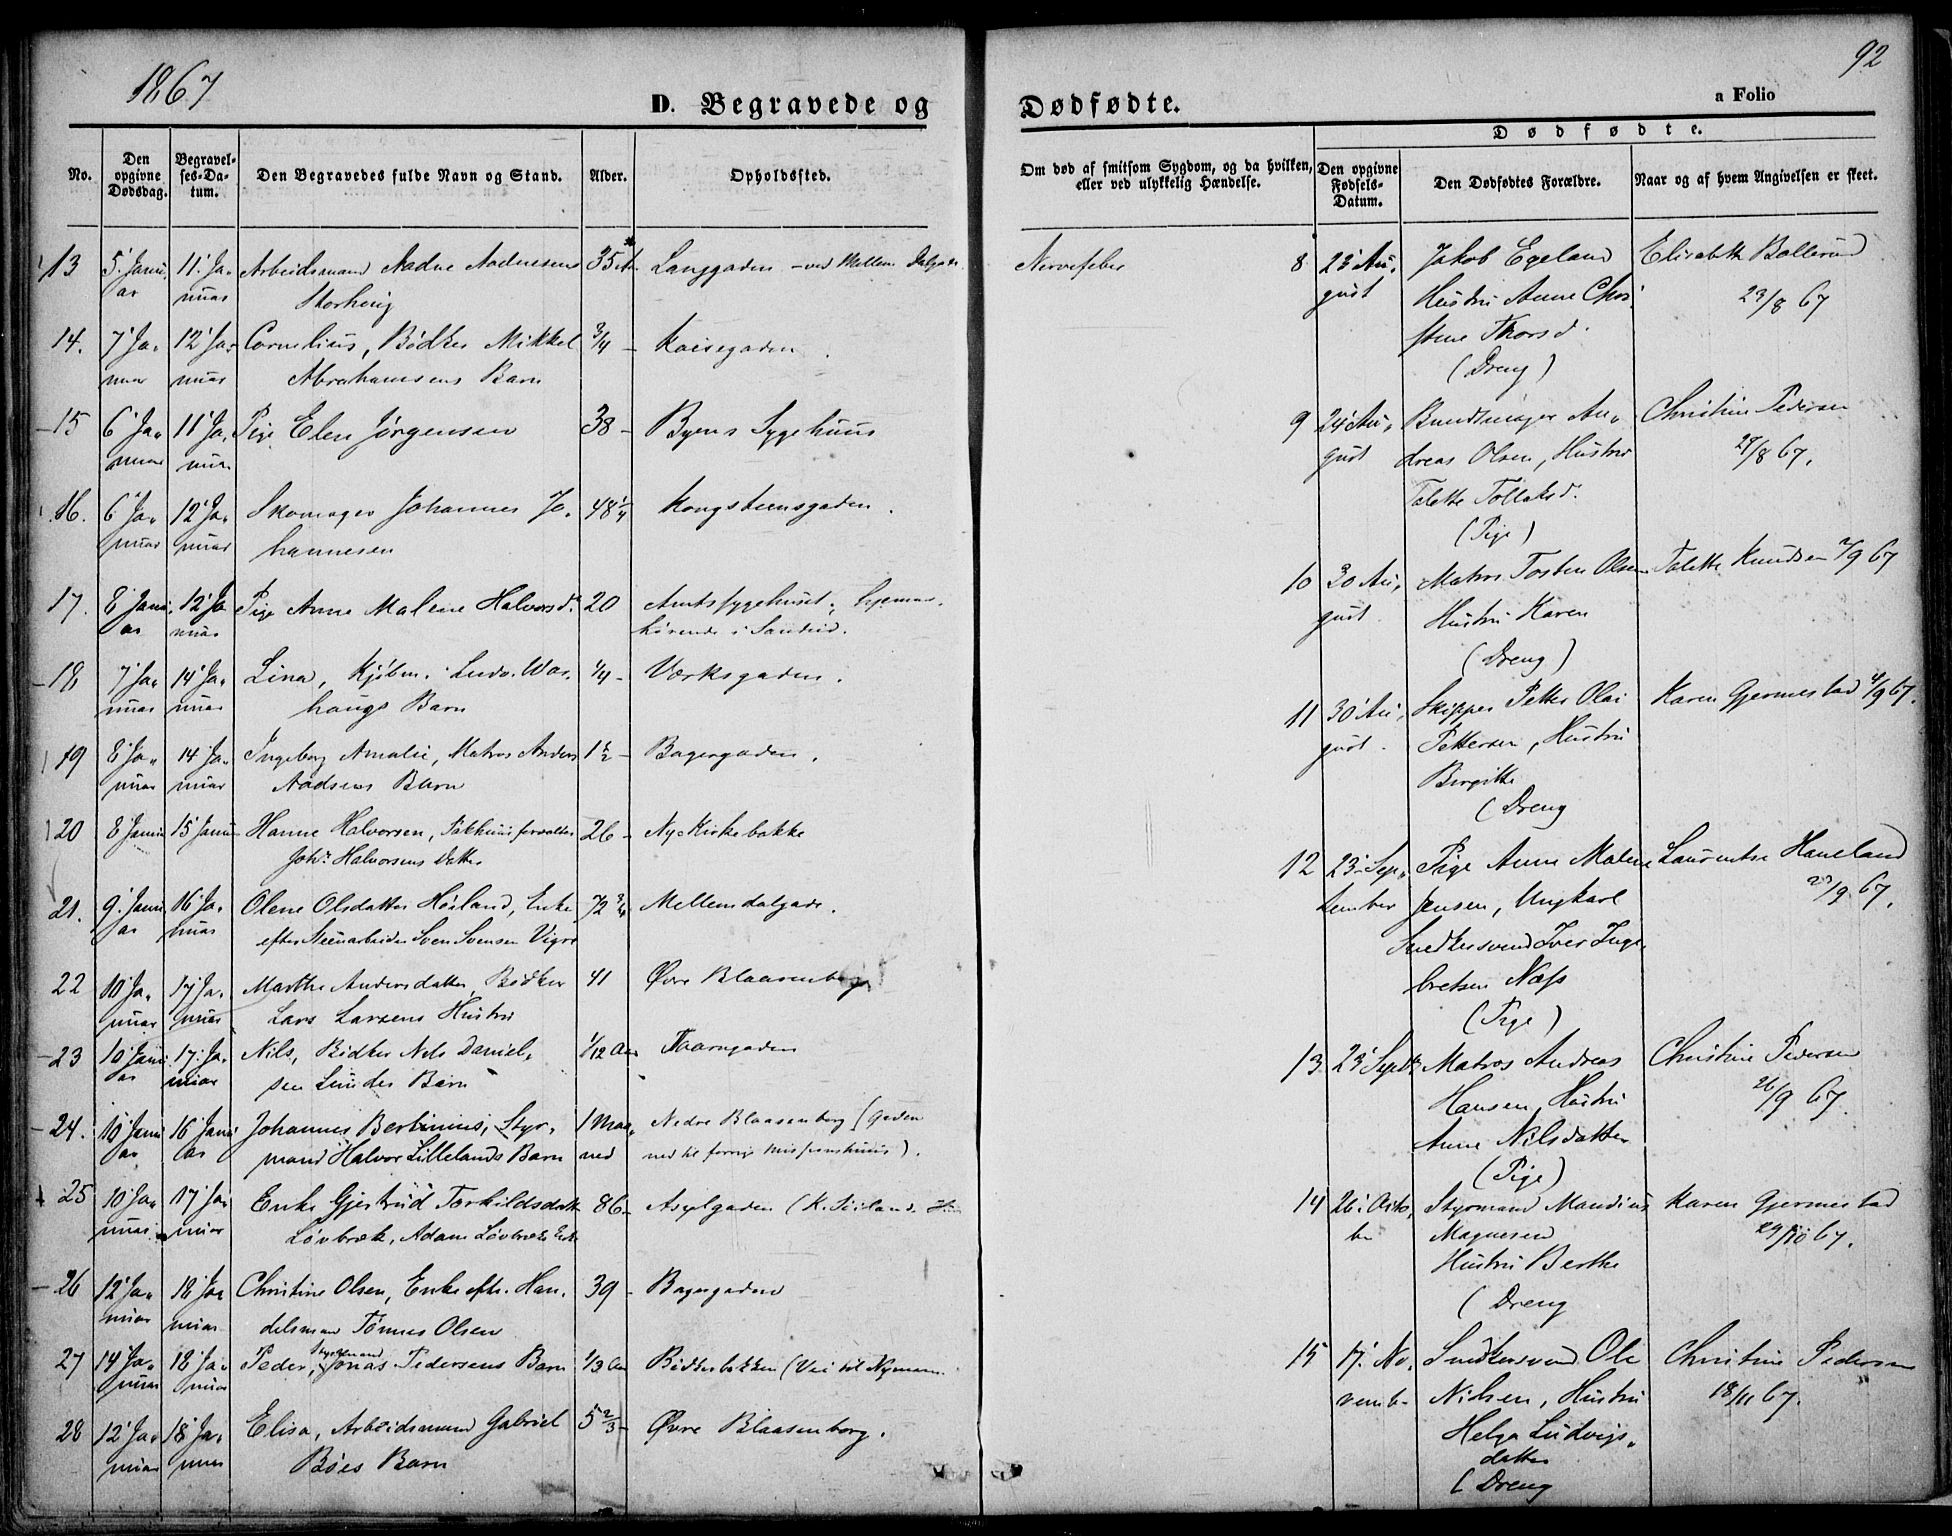 1867
92
D. Begravede og Dødfødte.
a Folio
No.
Den opgivne Dødsdag.
Begravelses-Datum.
Den Begravedes fulde Navn og Stand.
Alder.
Opholdssted.
Om død af smitsom Sygdom, og da hvilken, eller ved ulykkelig Hændelse.
Dødfødte.
Den opgivne Fødsels-Datum.
Den Dødfødtes Forældre.
Naar og af hvem Angivelsen er skeet.
13 5. Januar 11. Januar Arbeidsmand Aadne Aadnesen 35 Langgaden - ved Mellem Dalgade Nervefeber
Storhoug
14. 7' Januar 12' Januar Cornelius, Bødker Mikkel 3/4 - 
Abrahamsens Barn
15 6' Januar 11' Januar Pige Elen Jørgensen 38 - Byens Sygehuus
16. 6' Januar 12' Januar Skomager Johannes Jo- 48 1/4 Kongsteensgaden.
hannesen
17. 8' Januar 12' Januar Pige Anne Malene Halvorsd. 20 Amtssygehuset, hjemme-
hørende i Sandeid.
18 7' Januar 14' Januar Lina, Kjøbm. Ludv. War- 1/4 - Værksgaden.
hougs Barn
19 8' Januar 14' Januar Ingeborg Amalie, Matros Anders 1 1/2 - Bagergaden.
Aadsens Barn
20 8' Januar 15' Januar Hanne Halvorsen, Pakhuusforvalter 26 - Nye Kirkebakke
Johs. Halvorsens Datter
21. 9. Januar 16' Januar Olene Olsdatter Høiland, Enke 72 3/4 Mellemdalgade.
efter Steenarbeider Sven Svensen
22 10' Januar 17' Januar Marthe Andersdatter, Bødker 41 Øvre Blaasenborg
Lars Larsens Hustru
23 10' Januar 17. Januar Nils, Bødker Nels Daniel- 1/12 Aar Taarngaden
sen Lundes Barn
24. 10' Januar 16' Januar Johannes Bertinius, Styr- 1 Maaned Nedre Blaasenborg (Gaden
mand Halvor Lillelands Barn ned til forrige Missionshuus).
25 10' Januar 17' Januar Enke Gjertrud Torkildsdatter 86 - Asylgaden
Løvbræk, Adam Løvbræks Enke
26 12' Januar 18' Januar Christine Olsen, Enke efter Han- 39 - Bagergaden
delsmand Tønnes Olsen
27 14' Januar 18' Januar Peder, Styrmand Jonas Pedersens Barn 1/3 Aar Bødkerbakken (Vei til Nymann
28 12' Januar 18' Januar Elisa, Arbeidsmand Gabriel 5 2/3 - Øvre Blaasenborg.
Bøes Barn
8 23' August Jakob Egeland Elisabeth Bollerud
Hustru Anne Chri- 23/8 67
stine Thorsd.
(Dreng)
9 24' August Bundtmager An- Christine Pedersen
dreas Olsen, Hustru 27/8 67.
Talette Tollaksd.
(Pige)
10 30 August Matros Tosten Olsen Talette Knudsen 2/9 67
Hustru Karen
(Dreng)
11 30' August Skipper Petter Olai Karen Gjermestad 4/9 67.
Pettersen, Hustru
Birgitte
(Dreng
12 23' September Pige Anne Malene Laurentse Haneland
Jensen, Ungkarl 23/9 67.
Snedkersvend Iver Inge-
bretsen Næss
(Pige)
13. 23' Septbr Matros Andreas Christine Pedersen
Hansen, Hustru 26/9 67.
Anne Nilsdatter
(Pige)
14 26. Octo- Styrmand Mandius Karen Gjermestad
ber Magnesen 29/10 67.
Hustru Berthe
(Dreng
15 17. No- Snedkersvend Ole Christine Pedersen
vemb- Nilsen, Hustru 18/11 67.
Helga Ludvigs-
datter
(Dreng